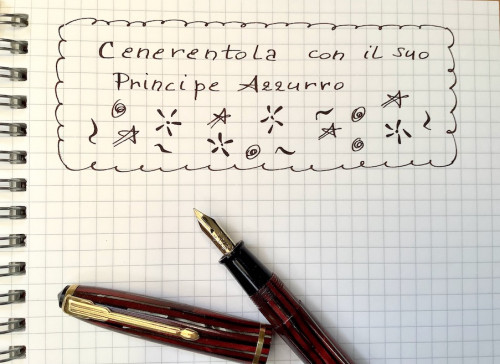 Cenerentola con il suo
Principe Azzurro